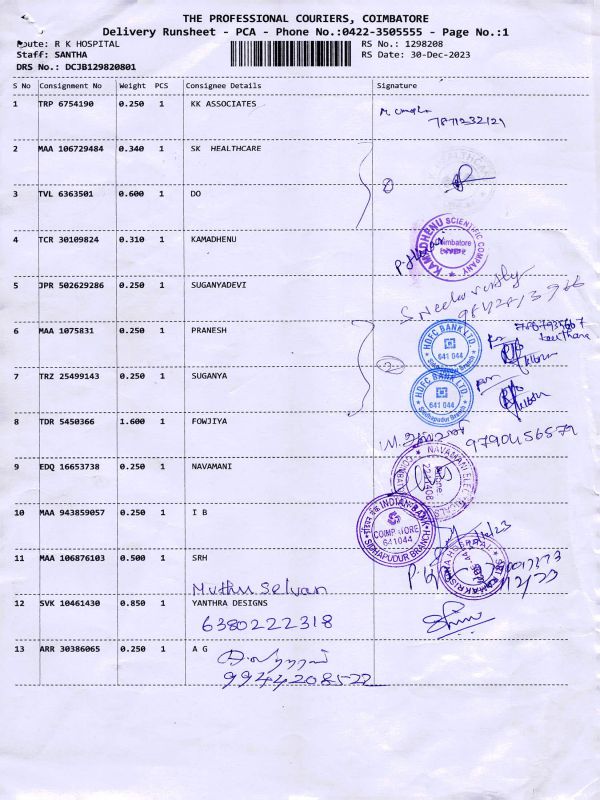 THE PROFESSIONAL COURIERS, COIMBATORE
Delivery Runsheet - PCA - Phone No.:0422-3505555 - Page No.:1
Route: R K HOSPITAL RS No.: 1298208
Staff: SANTHA RS Date: 30-Dec-2023
DRS No.: DCJB129820801
S No Consignment No Weight PCS Consignee Details Signature
1 TRP 6754190 0.250 1 KK ASSOCIATES
7871232121
2 MAA 106729484 0.340 1 SK HEALTHCARE
3 TVL 6363501 0.600 1 DO
4 TCR 30109824 0.310 1 KAMADHENU
KAMADHENU SCIENTIFIC COMPANY
Coimbatore
5 JPR 502629286 0.250 1 SUGANYADEVI
6 MAA 1075831 0.250 1 PRANESH
HDFC BANK LTD.
641 044
Siddhapudur Branch
7 TRZ 25499143 0.250 1 SUGANYA
HDFC BANK LTD.
641 044
Siddhapudur Branch
8 TDR 5450366 1.600 1 FOWJIYA
9790456579
9 EDQ 16653738 0.250 1 NAVAMANI
10 MAA 943859057 0.250 1 I B
INDIAN BANK
COIMBATORE
641044
SIDHAPUDUR BRANCH
11 MAA 106876103 0.500 1 SRH
Muthu Selvan
12 SVK 10461430 0.850 1 YANTHRA DESIGNS
6380222318
13 ARR 30386065 0.250 1 A G
9944208522